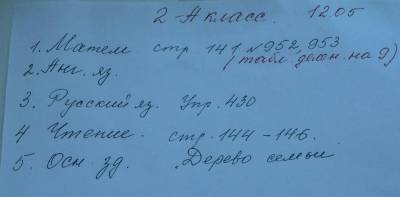 2 А класс. 12.05
1. Матем стр 141 №952, 953
(табл. делен. на 9)
2. Анг. яз.
3. Русский яз. Упр. 430
4 Чтение. стр. 144-146.
5. Осн. зд. Дерево семьи